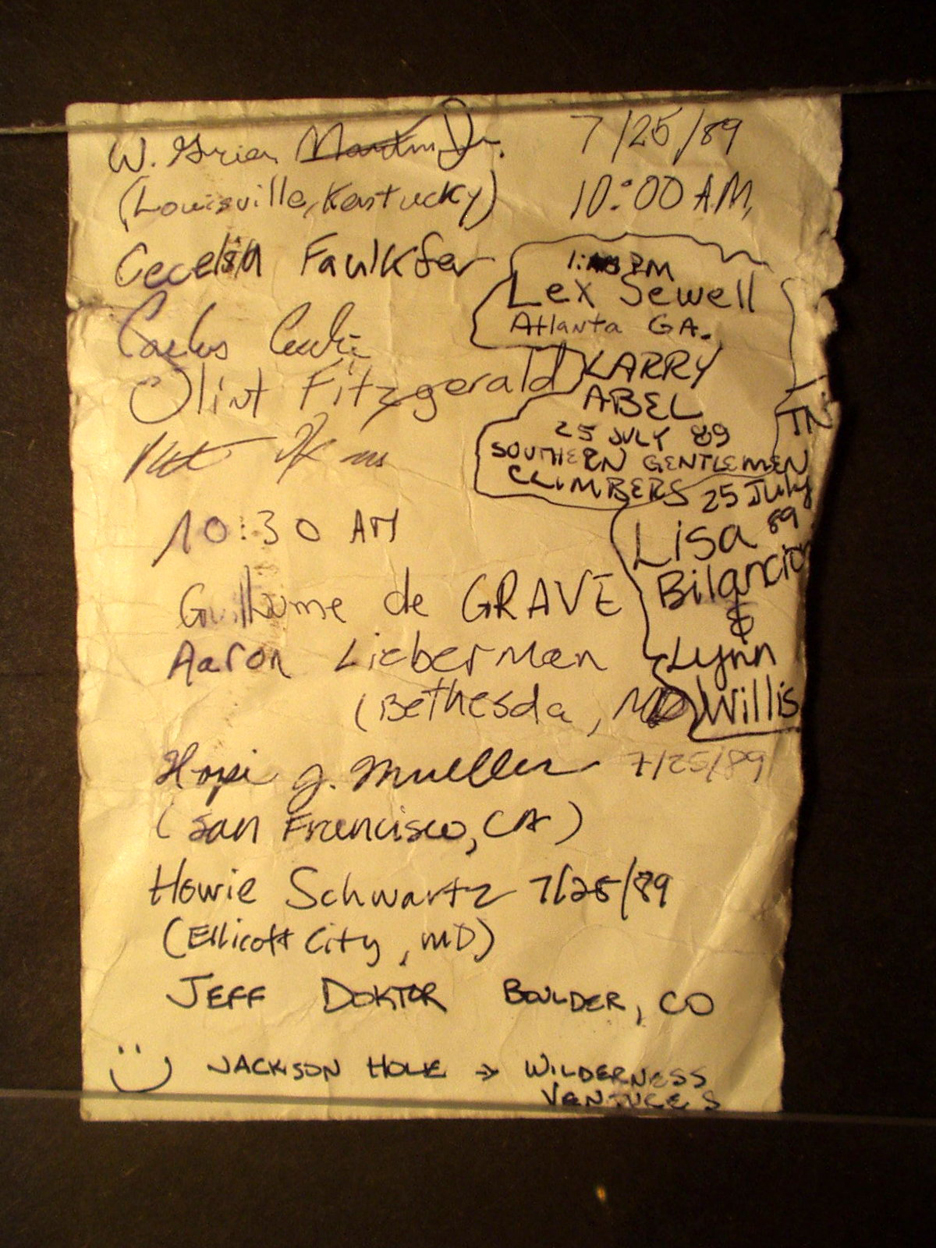 W. Martin Jr. 7/25/89
(Louisville, Kentucky) 10:00 AM,
Cecelia
1: PM
Lex Sewell
Atlanta GA.
Carlos
Clint Fitzgerald
LARRY
ABEL
25 JULY 89
SOUTHERN GENTLEMEN
CLIMBERS
TN
10:30 AM
25 July
89
Lisa
&
Lynn
Willis
Guillaume de GRAVE
Aaron Lieberman
(Bethesda, MD
J. Mueller 7/25/89
(San Francisco, CA)
Howie Schwartz 7/25/89
(Ellicott City, MD)
JEFF DOKTOR BOULDER, CO
JACKSON HOLE → WILDERNESS
VENTURES